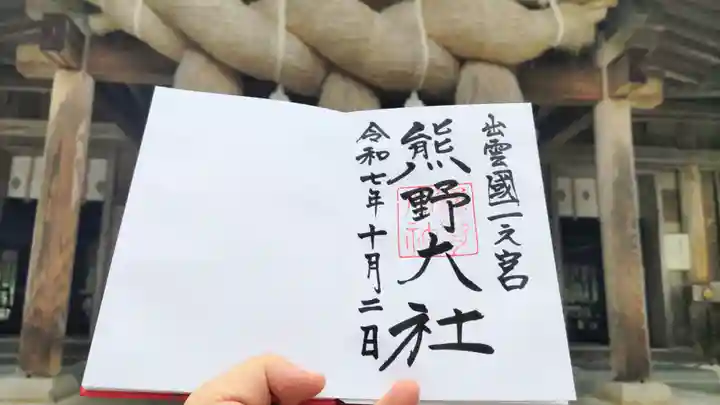 出雲國一之宮
熊野大社
令和七年十月二日